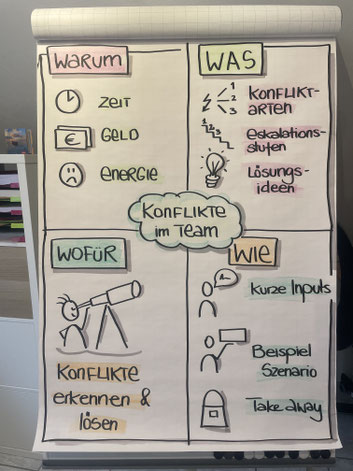 WARUM
ZEIT
€
GELD
ENERGIE
WAS
1
2
3
KONFLIKT-
ARTEN
eskalations-
stufen
Lösungs-
ideen
KONFLIKTE
im Team
WOFÜR
KONFLIKTE
erkennen &
lösen
WIE
kurze Inputs
Beispiel
Szenario
Take away